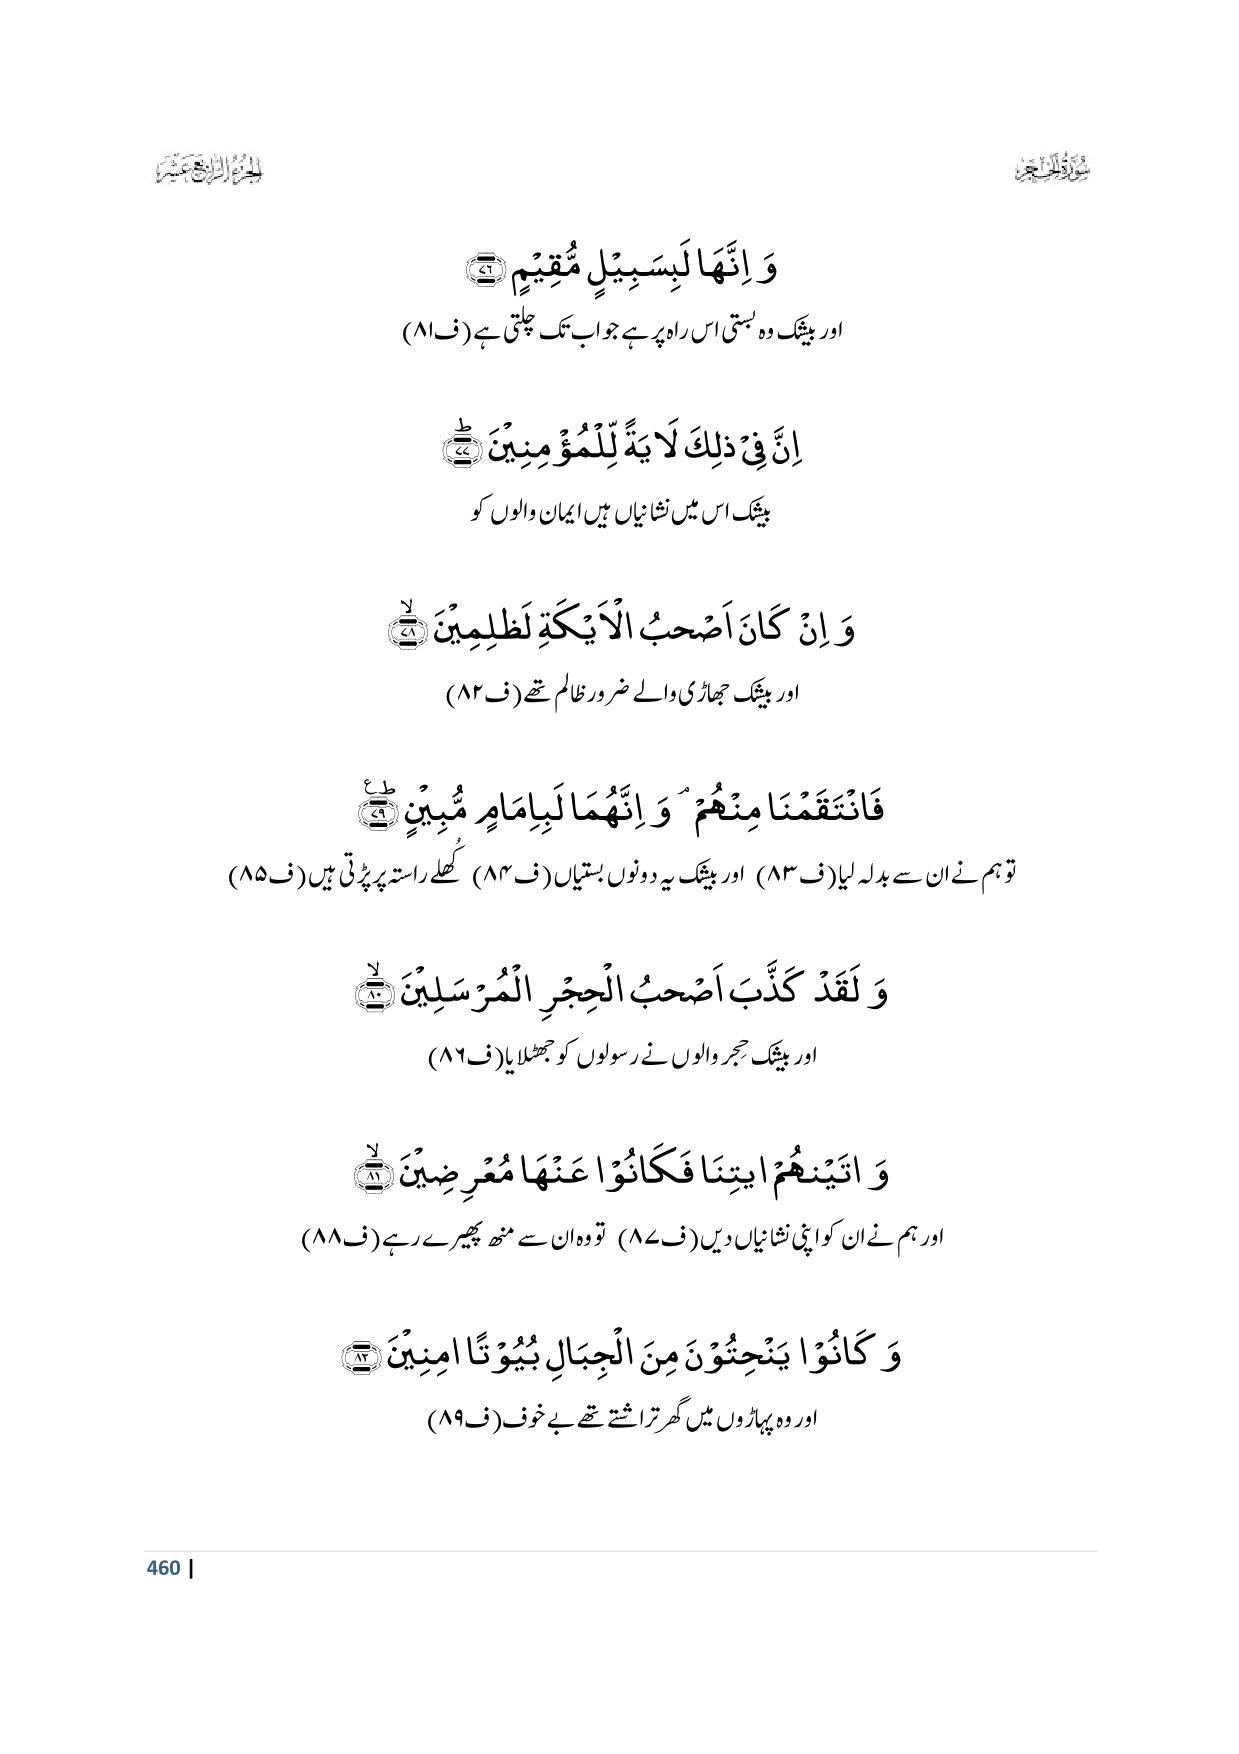 سُوْرَةُ الْحِجْر
الجزء الرابع عشر
وَ اِنَّهَا لَبِسَبِیْلٍ مُّقِیْمٍ ﴿۷۶﴾
اور بیشک وہ بستی اس راہ پر ہے جو اب تک چلتی ہے (ف۸۱)
اِنَّ فِیْ ذٰلِكَ لَاٰیَةً لِّلْمُؤْمِنِیْنَؕ ﴿۷۷﴾
بیشک اس میں نشانیاں ہیں ایمان والوں کو
وَ اِنْ كَانَ اَصْحٰبُ الْاَیْكَةِ لَظٰلِمِیْنَۙ ﴿۷۸﴾
اور بیشک جھاڑی والے ضرور ظالم تھے (ف۸۲)
فَانْتَقَمْنَا مِنْهُمْۘ وَ اِنَّهُمَا لَبِاِمَامٍ مُّبِیْنٍؕ۠ ﴿۷۹﴾
تو ہم نے ان سے بدلہ لیا (ف۸۳) اور بیشک یہ دونوں بستیاں (ف۸۴) کُھلے راستہ پر پڑتی ہیں (ف۸۵)
وَ لَقَدْ كَذَّبَ اَصْحٰبُ الْحِجْرِ الْمُرْسَلِیْنَۙ ﴿۸۰﴾
اور بیشک حِجر والوں نے رسولوں کو جھٹلایا (ف۸۶)
وَ اٰتَیْنٰهُمْ اٰیٰتِنَا فَكَانُوْا عَنْهَا مُعْرِضِیْنَۙ ﴿۸۱﴾
اور ہم نے ان کو اپنی نشانیاں دیں (ف۸۷) تو وہ ان سے منھ پھیرے رہے (ف۸۸)
وَ كَانُوْا یَنْحِتُوْنَ مِنَ الْجِبَالِ بُیُوْتًا اٰمِنِیْنَ ﴿۸۲﴾
اور وہ پہاڑوں میں گھر تراشتے تھے بے خوف (ف۸۹)
460 |